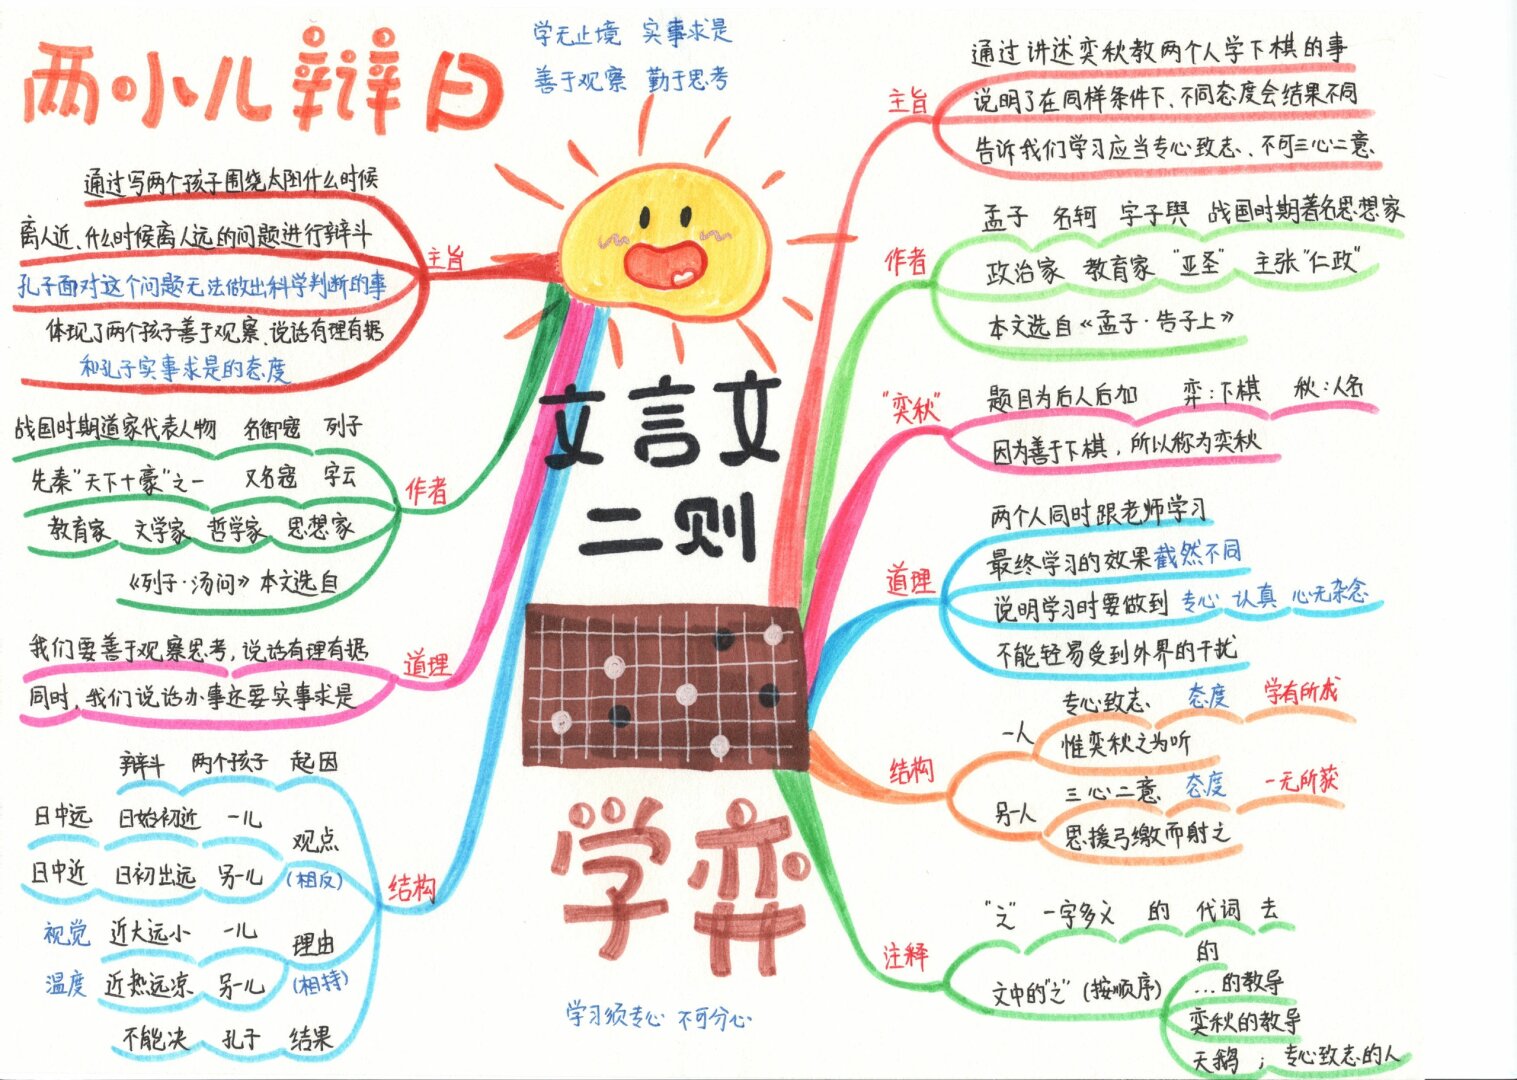 两小儿辩日
学无止境 实事求是
善于观察 勤于思考
通过写两个孩子围绕太阳什么时候
离人近、什么时候离人远的问题进行辩斗
主旨
孔子面对这个问题无法做出科学判断的事
体现了两个孩子善于观察、说话有理有据
和孔子实事求是的态度
战国时期道家代表人物 名御寇 列子
先秦“天下十豪”之一 又名寇 字云
作者
教育家 文学家 哲学家 思想家
《列子·汤问》本文选自
我们要善于观察思考，说话有理有据
道理
同时，我们说话办事还要实事求是
辩斗 两个孩子 起因
日中远 日始初近 一儿
观点
日中近 日初出远 另一儿 (相反)
结构
视觉 近大远小 一儿
理由
温度 近热远凉 另一儿 (相持)
不能决 孔子 结果
文言文
二则
学弈
学习须专心 不可分心
通过讲述奕秋教两个人学下棋的事
主旨
说明了在同样条件下、不同态度会结果不同
告诉我们学习应当专心致志、不可三心二意
孟子 名轲 字子舆 战国时期著名思想家
作者
政治家 教育家 “亚圣” 主张“仁政”
本文选自《孟子·告子上》
“奕秋”
题目为后人后加 弈：下棋 秋：人名
因为善于下棋，所以称为奕秋
两个人同时跟老师学习
最终学习的效果截然不同
道理
说明学习时要做到 专心 认真 心无杂念
不能轻易受到外界的干扰
专心致志 态度 学有所成
一人
惟奕秋之为听
结构
三心二意 态度 一无所获
另一人
思援弓缴而射之
“之” 一字多义 的 代词 去
注释
的
文中的“之”(按顺序) …的教导
奕秋的教导
天鹅；专心致志的人